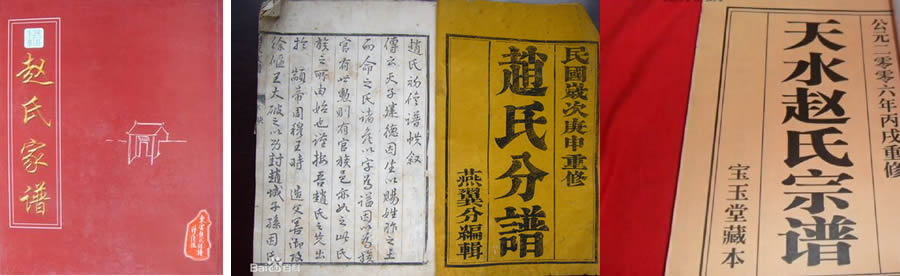 赵氏家谱
趙氏初修譜帙叙
傳云天子建德因生以賜姓胙之土
而命之氏諸矦以字為謚因以為族
官有世勲則有官族邑亦如之此氏
族之所由始也謹按吾趙氏之先出
於顓帝周穆王時造父善御攻
徐偃王大破之以功封趙城子孫因氏
Bai百科
民國歲次庚申重修
趙氏分譜
燕翼分編輯
公元二零零六年丙戌重修
天水赵氏宗谱
宝玉堂藏本